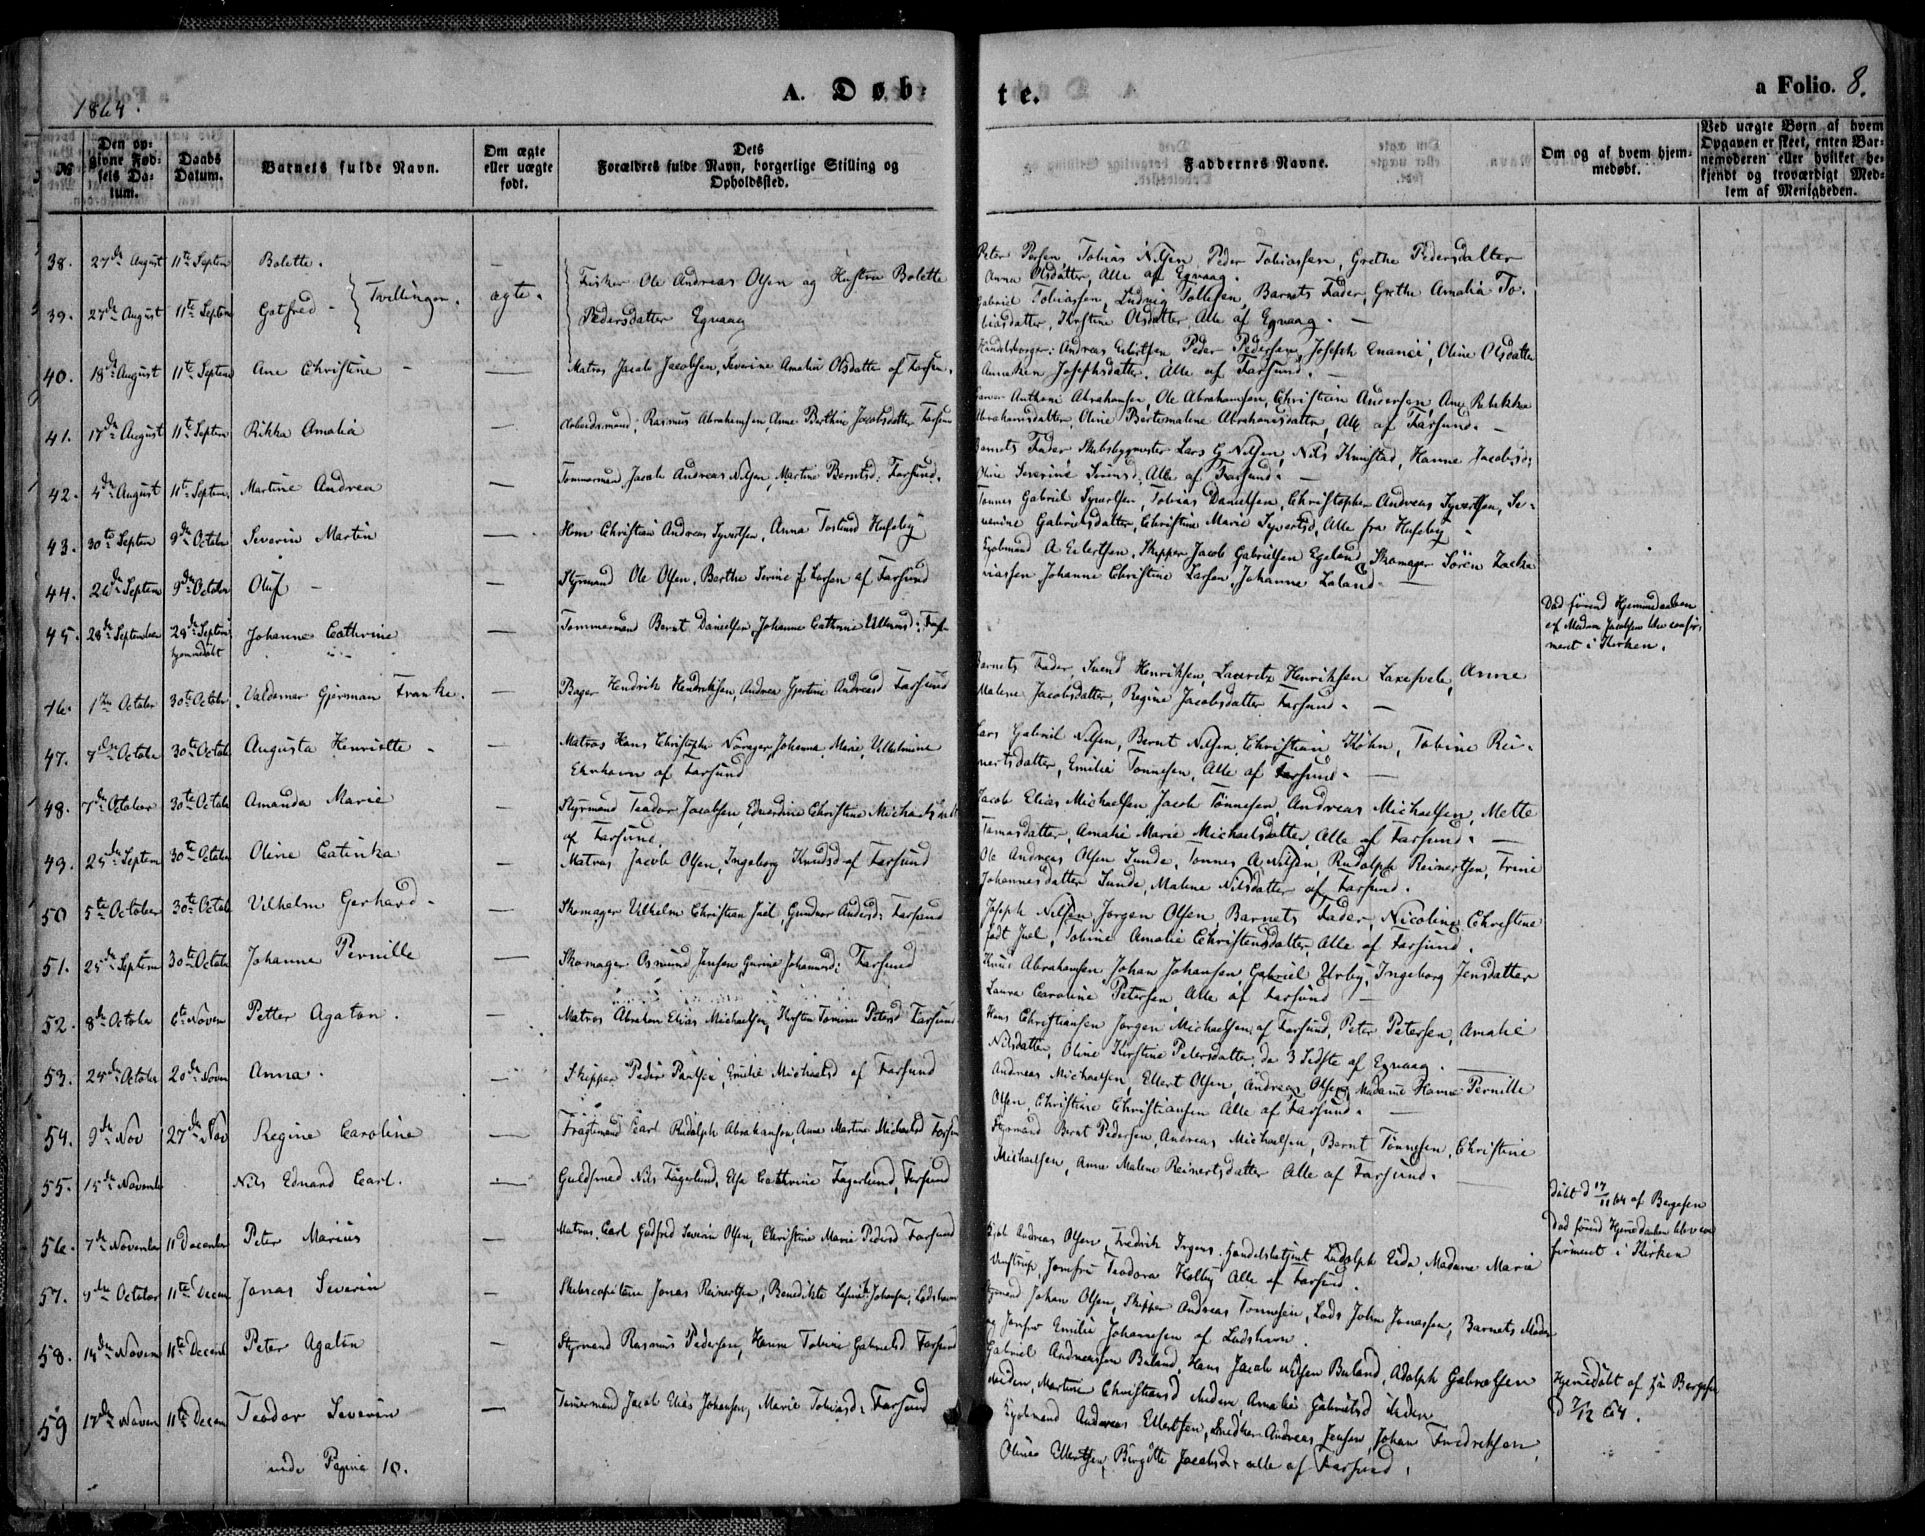 1864.
A. Døb:
te.
a Folio. 8.
No
Den opgivne Fødsels Datum.
Daabs Datum.
Barnets fulde Navn.
Om ægte eller uægte født.
Dets Forældres fulde Navn, borgerlige Stilling og Opholdssted.
Faddernes Navne.
Om og af hvem hjemmedøbt.
Ved uægte Børn af hvem Opgaven er skeet, enten Barnemoderen eller hvilket bekjendt og troværdigt Medlem af Menigheden.
38. 27de August 11te Septem Bolette.
39. 27de August 11te Septem Gotfred - Tvillinger. ægte. Fisker Ole Andreas Olsen og Hustru Bolette
Pedersdatter Egvaag
Tobias Nilsen, Peder Tobiassen, Grethe Pedersdatter
Anna Olsdatter, Alle af Egvaag.
Gabriel Tobiassen, Ludvig Tollefsen, Barnets Fader, Grethe Amalia To-
biasdatter, Kirstine Olsdatter, Alle af Egvaag.
40. 18de August 11te Septem Ane Christine - — Matros Jacob Jacobsen, Severine Amalia Olsdatter af Farsun.
Andreas Eilertsen, Peder Pedersen, Joseph, Oline Olsdatter
Anneken Josephsdatter. Alle af Farsund.
41. 17de August 11te Septem Rikka Amalia — Arbeidsmand: Rasmus Abrahamsen Anne Berthine Jacobsdatter Farsun
Anthoni Abrahamsen, Ole Abrahamsen, Christian Andersen, Ane Rebekka
Abrahamsdatter, Oline Bertemalene Abrahamsdatter, Alle af Farsund.
42. 4de August 11te Septem. Martine Andrea — Tømmermand Jacob Andreas Nilsen, Martine Berntsd: Farsund.
Barnets Fader, Skibsbygmester Lars G Nilsen, Nils, Hanne Jacobsd:
Oline Severine, Alle af Farsund.
43. 30te Septem 9de October Severin Martin — Christian Andreas Syvertsen, Anna Huseby
Tønnes Gabriel Syvertsen, Tobias Danielsen, Christopher Andreas Syvertsen, Se-
verine Gabrielsdatter, Christine Marie Syvertsd, Alle fra Huseby
44. Septem 9de October Oluf - — Styrmand Ole Olsen, Berthe Serine f. Larsen af Farsund
Kjøbmand A Eilertsen, Skipper Jacob Gabrielsen Egeland, Skomager Søren Zacha
riassen, Johanne Christine Larsen, Johanne Laland.
45. 28de September 28de Septem hjemmedøbt Johanne Cathrine — Tømmermand Bernt Danielsen, Johanne Cathrine
Daabens af Madam Jacobsen blev confir-
meret i Kirken.
46. 1ste October 30te October Valdemar Gjerman Franke. — Bager Hendrik Hendriksen, Andrea Andreasd Farsund
Barnets Fader, Svend Henriksen, Lauritz Henriksen, Anne
Malene Jacobsdatter, Regine Jacobsdatter Farsund.
47. 7de October 30te Octob Augusta Henriette — Matros Hans Christopher, Johanna Marie Vilhelmine
af Farsund
Lars Gabriel Nilsen, Bernt Nilsen, Christian Køhn, Tobine Rei-
nertsdatter, Emilie Tonnesen, Alle af Farsund.
48. 7de October 30te Octob Amanda Marie — Styrmand Teodor Jacobsen, Edvardine Christine Michaels
af Farsund
Jacob Elias Michaelsen, Jacob Tønnesen, Andreas Michaelsen, Mette
Tomasdatter, Amalie Marie Michaelsdatter, Alle af Farsund.
49. 25de Septem 30te October Oline Catinka — Matros Jacob Olsen, Ingeborg Knudsd af Farsund
Ole Andreas Olsen Lunde, Tønnes A Nilsen, Rudolph Reinertsen, Trine
Johannesdatter Lunde, Malene Nilsdatter af Farsund.
50 5te October 30te Octob Vilhelm Gerhard - — Skomager Vilhelm Christian Juel, Gunder Andersd: Farsund
Joseph Nilsen, Jørgen Olsen, Barnets Fader, Nicoline Christine
født Juel, Tobine Amalie Christensdatter, Alle af Farsund.
51. 25de Septem 30te Octob Johanne Pernille — Skomager Osmund Jensen, Johannesd: Farsund
Knud Abrahamsen, Johan Johansen, Gabriel, Ingeborg Jensdatter
Laura Caroline Petersen, Alle af Farsund
52. 8de October 6te Novem Petter Agaton. — Matros Abraham Elias Michaelsen, Kirsten Petersd Farsund
Hans Christiansen, Jørgen Michaelsen, af Farsund, Peter Petersen, Amalie
Nilsdatter, Oline Kirstine Petersdatter, de 3 Sidste af Egvaag.
53. October 20de Novem Anna. — Skipper Peder, Emilie Michaelsd af Farsund
Andreas Michaelsen, Ellert Olsen, Andreas Olsen, Madame Hanne Pernille
Olsen, Christine Christiansen Alle af Farsund.
54. 9de Nov 27de Nov Regine Caroline — Carl Rudolph Abrahamsen, Anne Martine Michaelsd Farsun
Styrmand Bernt Pedersen, Andreas Michaelsen, Bernt Tønnesen, Christine
Michaelsen, Anne Malene Reinertsdatter Alle af Farsund.
55. 15de Novemb Nils Edvard Carl. — Guldsmed Nils Fagerlund, Else Cathrine Fagerlund, Farsund
døbt d 17/11 64 af Bergesen
56. 7de November 11 December Peter Marius — Matros Carl Gudfred Severin Olsen, Christine Marie Pedersd Farsund
Andreas Olsen, Fredrik Irgens, Handelsbetjent Ludolph Eide, Madame Marie
Jomfru Teodora Holby Alle af Farsund.
firmeret i Kirken
57. October 11te Decem Jonas Severin — Skibscapitain Jonas Reinertsen, Benedikte Johansen, Lodshavn
Johan Olsen, Skipper Andreas Tonnesen, Lods John Jonassen, Barnets Moder
og Jomfru Emilie Johannesen af Lodshavn.
58. 14de Novem 11te Decemb Peter Agaton — Styrmand Rasmus Pedersen, Hanne Tobine Gabrielsd Farsund
Gabriel Andreassen Buland, Hans Jacob Nilsen Buland, Adolph Gabrielsen
Martine Christiansd, Amalie Gabrielsd
Hjemmedøbt af Bergesen
d 7/12 64.
59 17de Novem 11te Decem Teodor Severin — Tømmermand Jacob Elias Johansen, Marie Tobiasd: Farsund
Kjøbmand Andreas Ellertsen, Snedker Andreas Jensen, Johan Fredriksen
Oline Ellertsen, Birgitte Jacobsd: alle af Farsund.
vide Pagina 10.